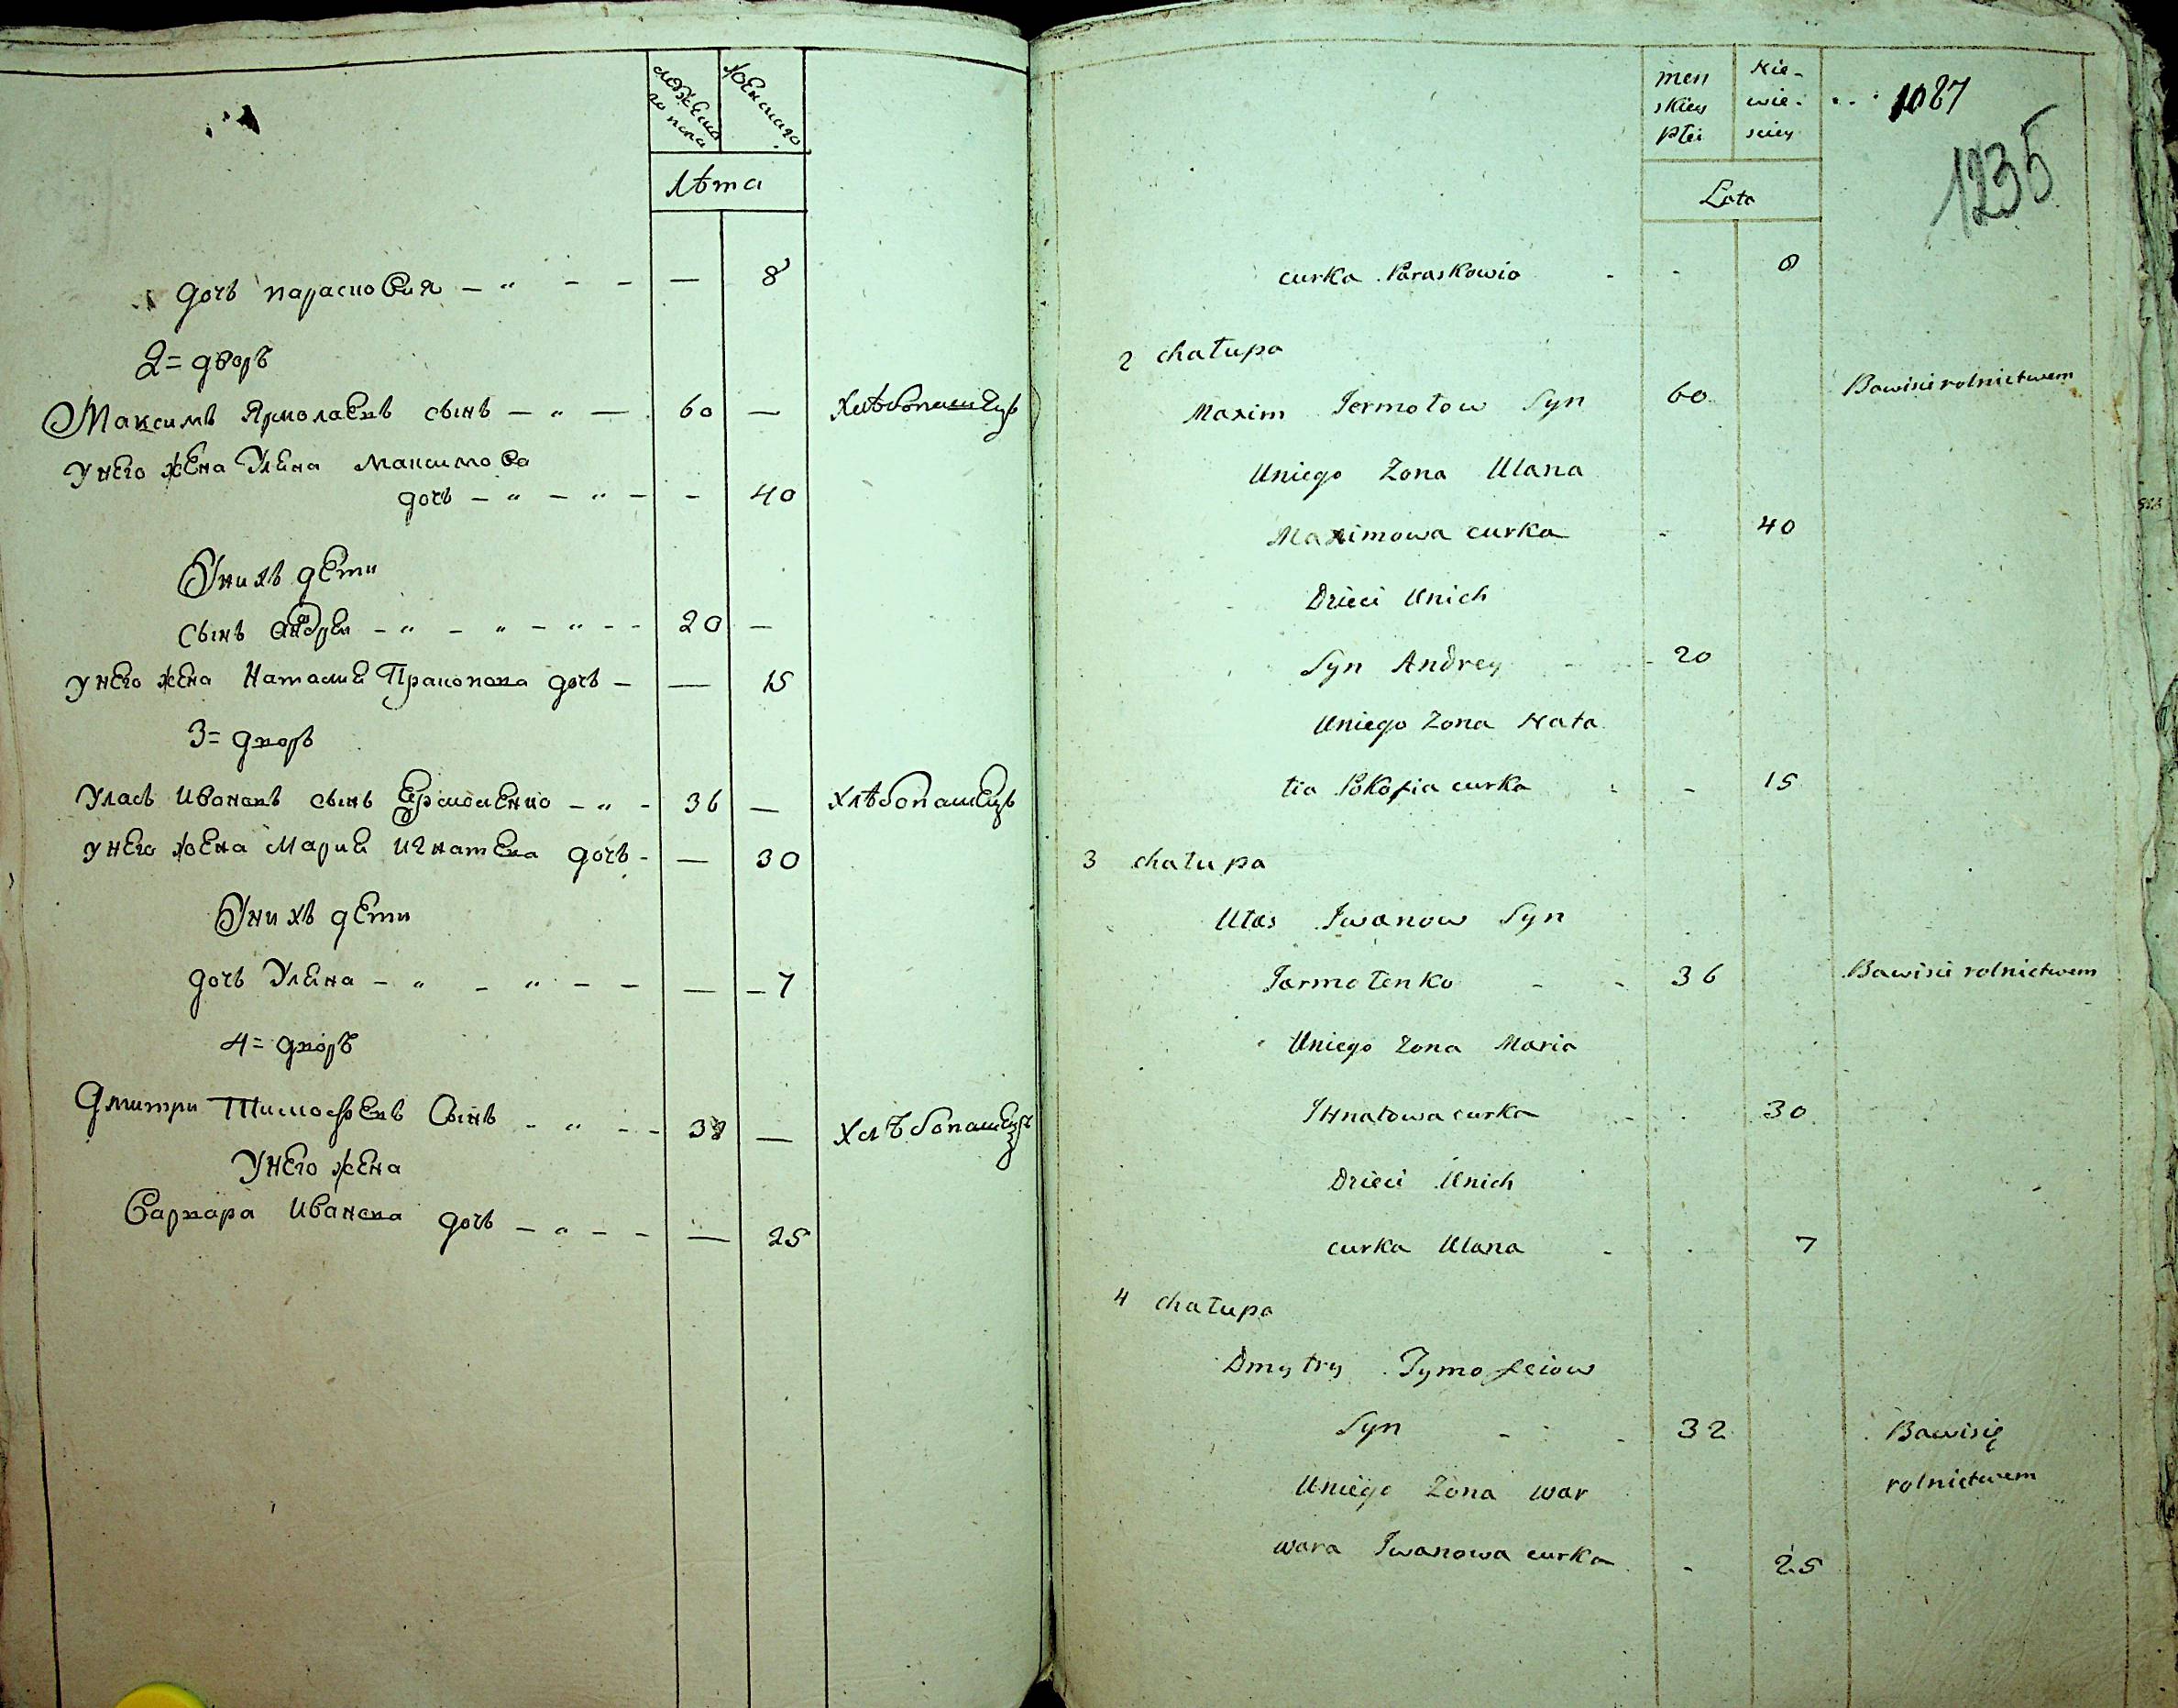 мужеска
го пола
женскаго
Лѣта
дочъ парасковия — " - - — 8
2= дворъ
Максимъ Ярмолаевъ сынъ — " — 60 — Хлѣбопашецъ
унего жена Улена Максимова
дочъ — " — " — - 40
Унихъ дети
сынъ андреи - " - " - " - - 20 —
унего жена Наталия Пракопова дочъ — — 15
3= дворъ
Уласъ Ивановъ сынъ Ермоленко - " - 36 — хлѣбопашецъ
унего жена Мария Игнатева дочъ - — 30
Унихъ дети
дочъ Улена - " - " - - — — 7
4= дворъ
Дмитри Тимофеевъ Сынъ - " - - 32 — Хлѣбопашецъ
Унего жена
Варвара Иванова дочъ - " - - — 25
men
skiey
Płci
Nie-
wie-
sciey
1087
1235
Lata
curka Paraskowia - - 8
2 chałupa
Maxim Jermołow Syn 60 Bawisie rolnictwem
Uniego Zona Ulana
Maximowa curka - 40
Dzieci Unich
Syn Andrey - - 20
Uniego Zona Nata
lia Pokopia curka - - 15
3 chałupa
Ułas Iwanow Syn
Jarmołenko - - 36 Bawisie rolnictwem
Uniego Zona Maria
IHnatowa curka - 30
Dzieci Unich
curka Ulana - - 7
4 chałupa
Dmytry Tymofeiow
Syn - - 32 Bawisię
Uniego Zona war rolnictwem
wara Iwanowa curka - 25